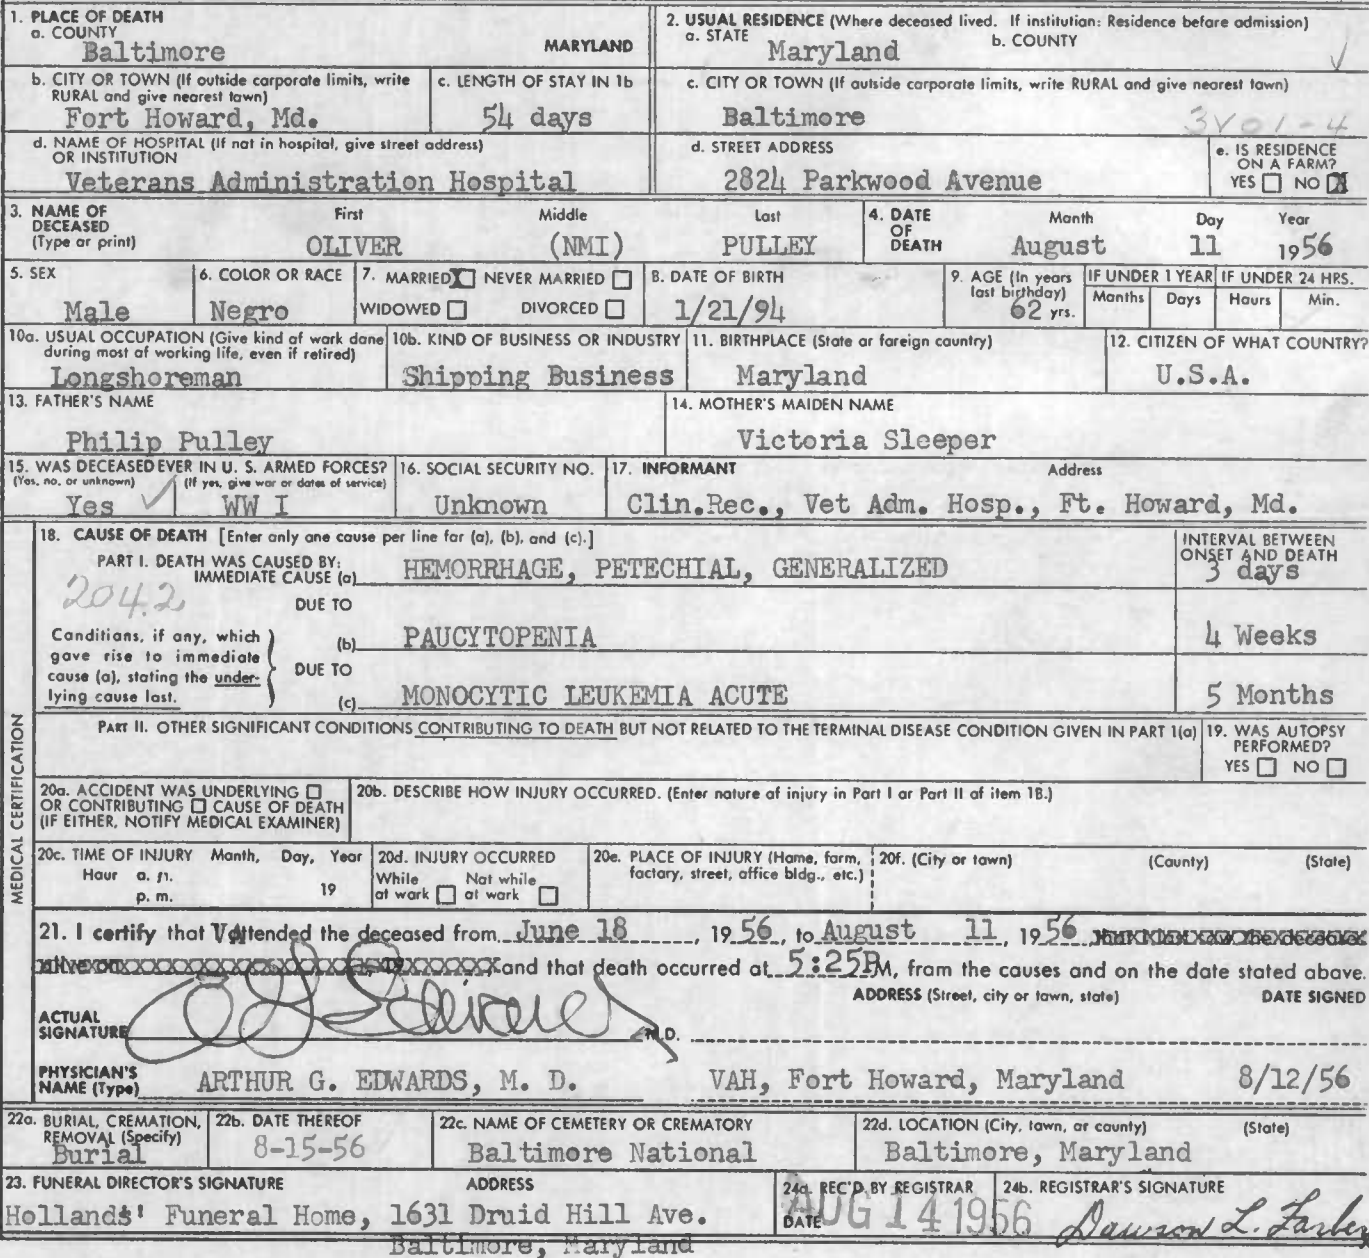 1. PLACE OF DEATH
a. COUNTY
Baltimore MARYLAND
2. USUAL RESIDENCE (Where deceased lived. If institution: Residence before admission)
a. STATE b. COUNTY
Maryland
b. CITY OR TOWN (If outside corporate limits, write RURAL and give nearest town)
Fort Howard, Md.
c. LENGTH OF STAY IN 1b
54 days
c. CITY OR TOWN (If outside corporate limits, write RURAL and give nearest town)
Baltimore
3V01-4
d. NAME OF HOSPITAL (If not in hospital, give street address)
OR INSTITUTION
Veterans Administration Hospital
d. STREET ADDRESS
2824 Parkwood Avenue
e. IS RESIDENCE
ON A FARM?
YES NO X
3. NAME OF
DECEASED
(Type or print)
First Middle Last
OLIVER (NMI) PULLEY
4. DATE
OF
DEATH
Month Day Year
August 11 1956
5. SEX
Male
6. COLOR OR RACE
Negro
7. MARRIED X NEVER MARRIED
WIDOWED DIVORCED
8. DATE OF BIRTH
1/21/94
9. AGE (In years
last birthday)
62 yrs.
IF UNDER 1 YEAR IF UNDER 24 HRS.
Months Days Hours Min.
10a. USUAL OCCUPATION (Give kind of work done
during most of working life, even if retired)
Longshoreman
10b. KIND OF BUSINESS OR INDUSTRY
Shipping Business
11. BIRTHPLACE (State or foreign country)
Maryland
12. CITIZEN OF WHAT COUNTRY?
U.S.A.
13. FATHER'S NAME
Philip Pulley
14. MOTHER'S MAIDEN NAME
Victoria Sleeper
15. WAS DECEASED EVER IN U. S. ARMED FORCES?
(Yes, no, or unknown) (If yes, give war or dates of service)
Yes WW I
16. SOCIAL SECURITY NO.
Unknown
17. INFORMANT Address
Clin.Rec., Vet Adm. Hosp., Ft. Howard, Md.
MEDICAL CERTIFICATION
18. CAUSE OF DEATH [Enter only one cause per line for (a), (b), and (c).]
INTERVAL BETWEEN
ONSET AND DEATH
PART I. DEATH WAS CAUSED BY:
IMMEDIATE CAUSE (a) HEMORRHAGE, PETECHIAL, GENERALIZED 3 days
204.2
DUE TO
Conditions, if any, which
gave rise to immediate
cause (a), stating the under-
lying cause last.
(b) PAUCYTOPENIA 4 Weeks
DUE TO
(c) MONOCYTIC LEUKEMIA ACUTE 5 Months
PART II. OTHER SIGNIFICANT CONDITIONS CONTRIBUTING TO DEATH BUT NOT RELATED TO THE TERMINAL DISEASE CONDITION GIVEN IN PART 1(a)
19. WAS AUTOPSY
PERFORMED?
YES NO
20a. ACCIDENT WAS UNDERLYING
OR CONTRIBUTING CAUSE OF DEATH
(IF EITHER, NOTIFY MEDICAL EXAMINER)
20b. DESCRIBE HOW INJURY OCCURRED. (Enter nature of injury in Part I or Part II of item 18.)
20c. TIME OF INJURY Month, Day, Year
Hour a. m.
p. m. 19
20d. INJURY OCCURRED
While Not while
at work at work
20e. PLACE OF INJURY (Home, farm,
factory, street, office bldg., etc.)
20f. (City or town) (County) (State)
21. I certify that VA attended the deceased from June 18, 1956, to August 11, 1956
and that death occurred at 5:25PM, from the causes and on the date stated above.
ADDRESS (Street, city or town, state) DATE SIGNED
ACTUAL
SIGNATURE M.D.
PHYSICIAN'S
NAME (Type) ARTHUR G. EDWARDS, M. D. VAH, Fort Howard, Maryland 8/12/56
22a. BURIAL, CREMATION,
REMOVAL (Specify)
Burial
22b. DATE THEREOF
8-15-56
22c. NAME OF CEMETERY OR CREMATORY
Baltimore National
22d. LOCATION (City, town, or county) (State)
Baltimore, Maryland
23. FUNERAL DIRECTOR'S SIGNATURE ADDRESS
Hollands' Funeral Home, 1631 Druid Hill Ave.
Baltimore, Maryland
24a. REC'D BY REGISTRAR
DATE AUG 14 1956
24b. REGISTRAR'S SIGNATURE
Dawson L. Farber